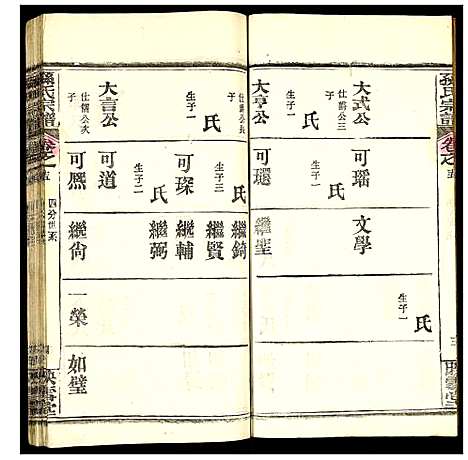 孫氏宗譜
卷之
五
大式公
仕爵公三
子
可瑤
文學
氏
生子一
大亨公
生子一
氏
可環
生子一
氏
繼聖
繼錡
生子三
氏
繼賢
可琛
繼輔
大言公
仕儒公次
子
生子一
氏
可道
生子二
氏
繼弼
可熈
繼尙
一榮
如璧
四分世系
孫氏宗譜
卷之
五